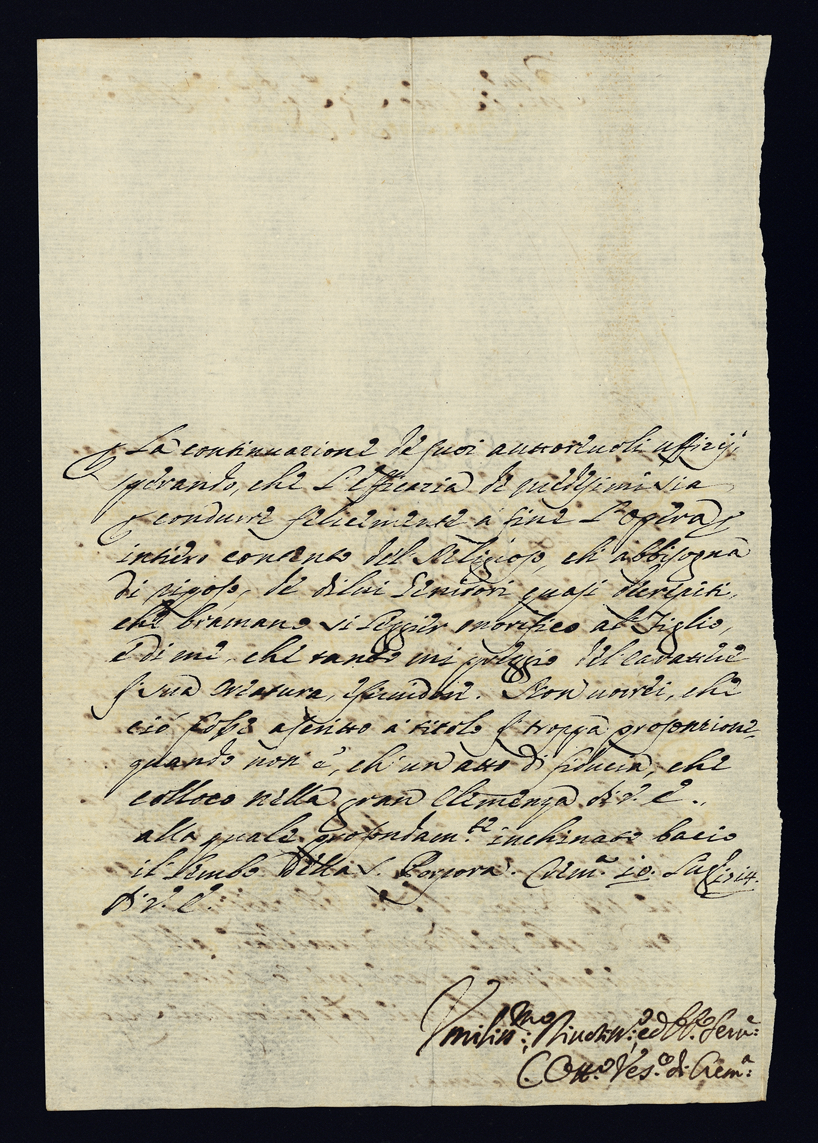 La continuazione de suoi autoreuoli uffizij,
sperando, che L'efficazia de medesimi sia
p condurre felicemente à fine L'opera, p
intiero contento del Religioso, ch' abbisogna
di riposo, de di lui Genitori quasi decrepiti,
che bramano
e di me, che tanto mi preggio del carattere
sua creatura, essendone. Non uorrei, che
ciò fosse ascritto à titolo troppa prosonzione,
quando non è, ch' un atto di fiducia, che
colloco nella gran Clemenza di V. E.,
alla quale profondam.te inchinato bacio
il Lembo della S. Porpora. Crem.a 10. Lug.o 1714.
di V. E.
Vmiliss.mo Diuotiss.o ed Obb.o Seru.e
Ves.o di Crem.a